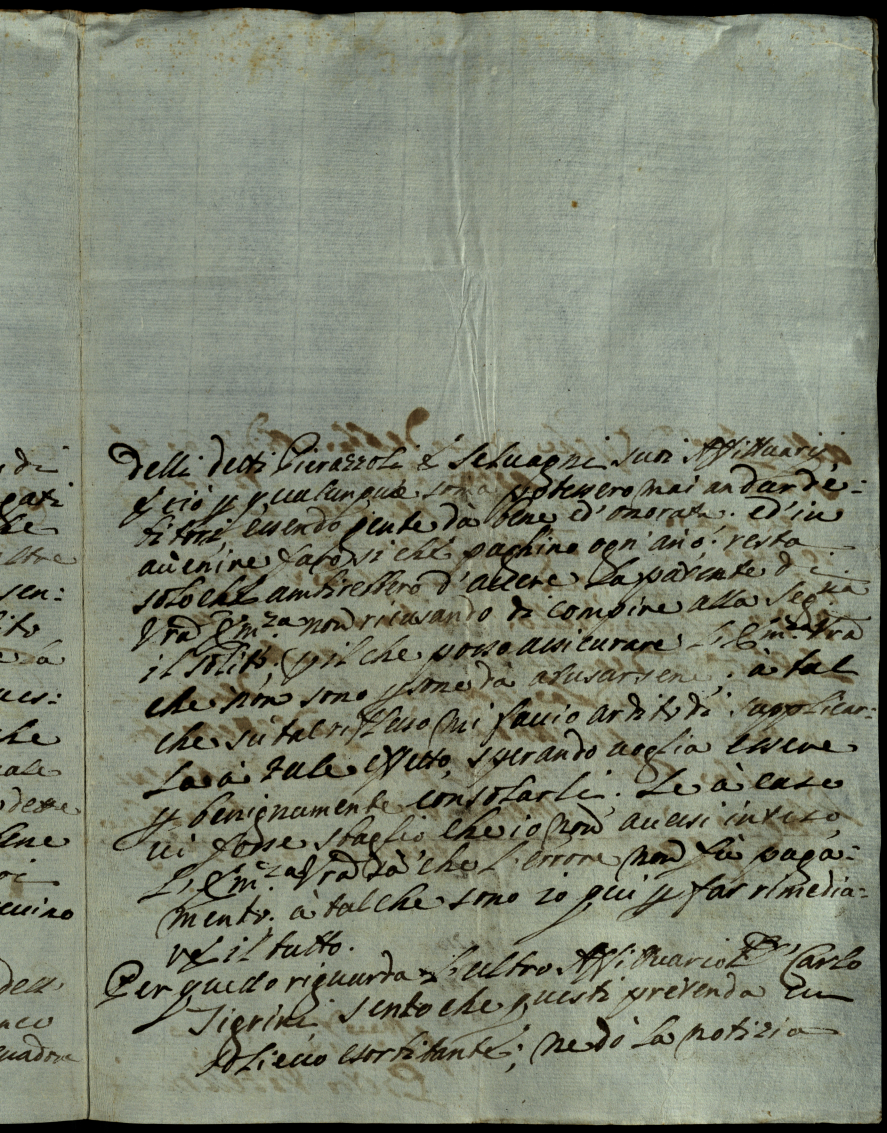 delli detti Pierazzoli è Seluagni suoi Affittuarij
è ciò p qualunque soma potessero mai andar dé=
bitori, essendo gente dà bene ed' onorata. ed' in
auenire farò si ché paghino ogn' año: resta
solo ché ambirebbero d'auere la patente di
Vra Em.za non ricusando di compire alla Seg.ria
il solito; p il che posso assicurare L' Em.za Vra
che non sono psone dà abusarsene; à tal
che sù tal riflesso mi faccio ardito di supplicar=
La à tale effetto, sperando uoglia essere
p benignamente consolarli. Se à caso
ui fosse sbaglio che io non auessi inteso
L' Em.za Vra dà che L'errore non fà paga=
mento. à tal che sono io qui p far rimedia=
re il tutto.
Per quado riguarda L'altro Affittuario Carlo
Tigrini sento che questi pretenda un
esorbitante; ne dò la notizia
di
gati
altre
sen:
lito
e la
ues:
che
uale
dette
dell